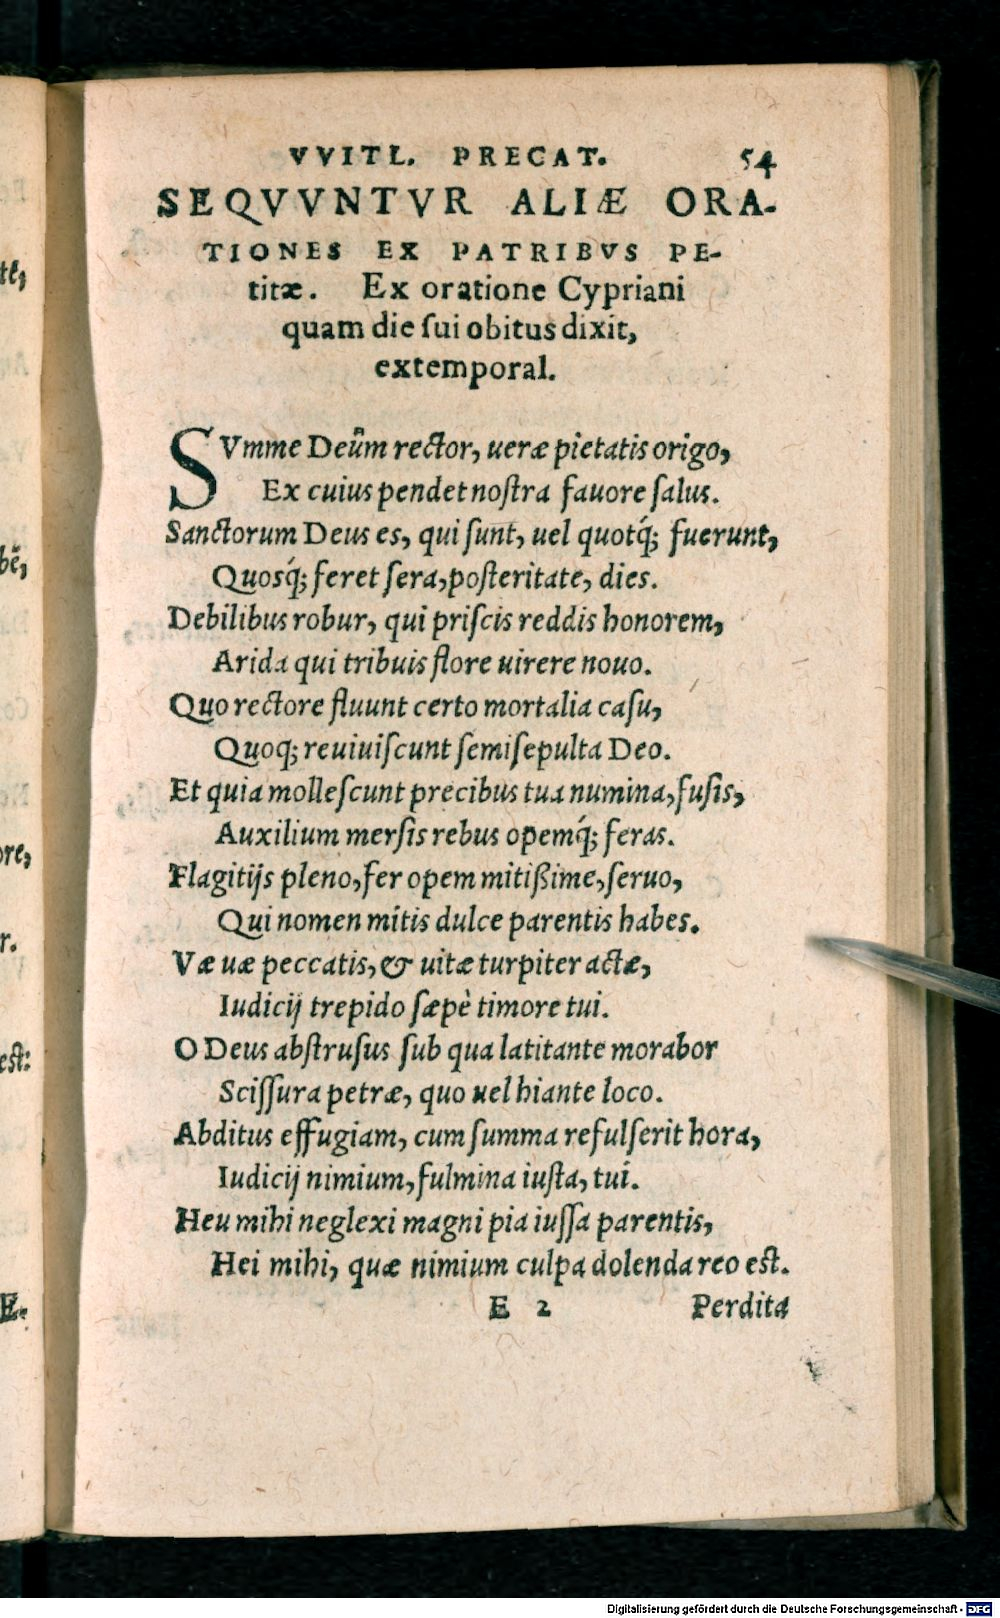 VVITL. PRECAT. 54
SEQVVNTVR ALIÆ ORA-
TIONES EX PATRIBVS PE-
titæ. Ex oratione Cypriani
quam die ſui obitus dixit,
extemporal.
SVmme Deûm rector, ueræ pietatis origo,
Ex cuius pendet noſtra fauore ſalus.
Sanctorum Deus es, qui ſunt, uel quotq́; fuerunt,
Quosq́; feret ſera, poſteritate, dies.
Debilibus robur, qui priſcis reddis honorem,
Arida qui tribuis flore uirere nouo.
Quo rectore fluunt certo mortalia caſu,
Quoq; reuiuiſcunt ſemiſepulta Deo.
Et quia molleſcunt precibus tua numina, fuſis,
Auxilium merſis rebus opemq́; feras.
Flagitijs pleno, fer opem mitißime, ſeruo,
Qui nomen mitis dulce parentis habes.
Væ uæ peccatis, & uitæ turpiter actæ,
Iudicij trepido ſæpè timore tui.
O Deus abſtruſus ſub qua latitante morabor
Sciſſura petræ, quo uel hiante loco.
Abditus effugiam, cum ſumma refulſerit hora,
Iudicij nimium, fulmina iuſta, tui.
Heu mihi neglexi magni pia iuſſa parentis,
Hei mihi, quæ nimium culpa dolenda reo est.
E 2 Perdita
te,
bẽ,
ore,
r.
est:
E.
Digitalisierung gefördert durch die Deutsche Forschungsgemeinschaft - DFG